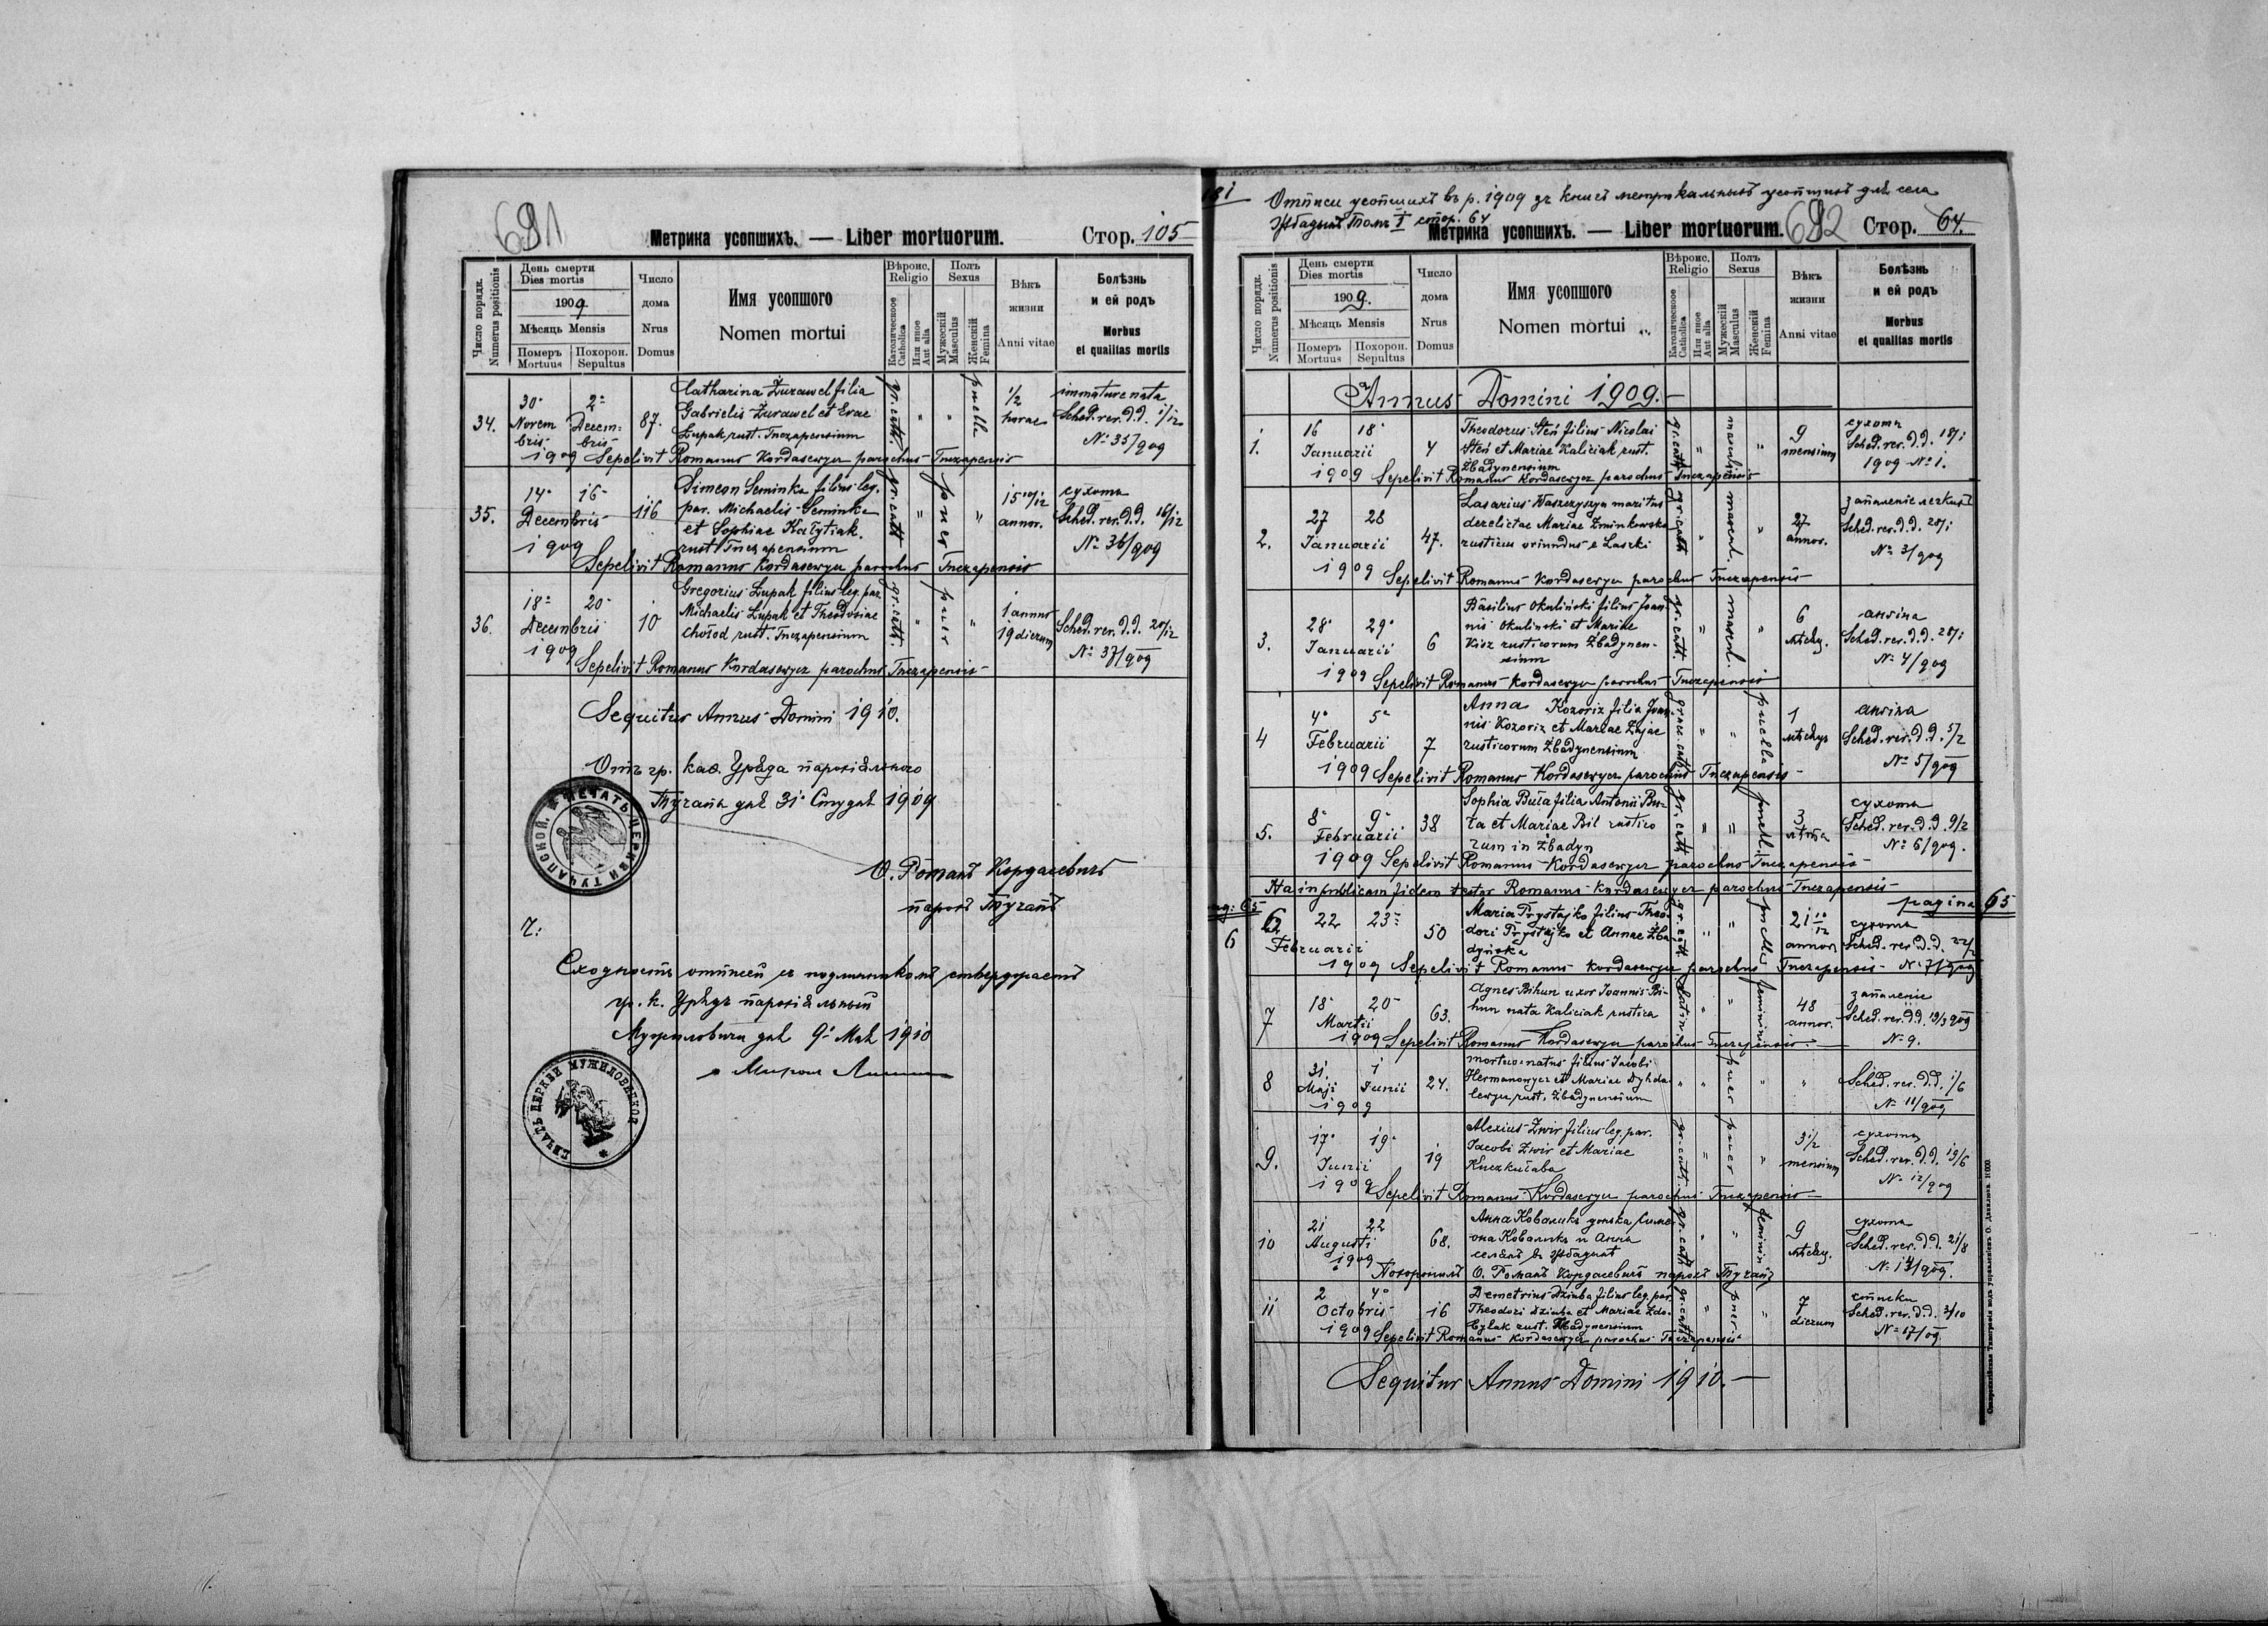 691
Метрика усопшихъ. — Liber mortuorum. Стор. 105
Число порядк. Numerus positionis
День смерти Dies mortis
1909.
Мѣсяць Mensis
Померъ Mortuus
Похорон. Sepultus
Число дома Nrus Domus
Имя усопшого
Nomen mortui
Вѣроис. Religio
Католическое Catholica
Или иное Aut alia
Полъ Sexus
Мужескій Masculus
Женскій Femina
Вѣкъ жизни
Anni vitae
Болѣзнь и ей родъ
Morbus et qualitas mortis
34. 30 Novembris 2 Decembris 87. Catharina Żurawel filia
Gabrielis Żurawel et Evae
Łupak rust. Tuczapensium
gr. catt. " " puella ½ horae immature nata
Sched. rev. D. D. 1/12
№ 35/909
1909 Sepelivit Romanus Kordasewycz parochus Tuczapensis
35. 14 16 Decembris 116 Simeon Seminka filius leg.
par. Michaelis Seminka
et Sophiae Kałytiak.
rust. Tuczapensium
gr. catt " puer " 15 10/12 annor. сухоты
Sched. rev. D. D. 16/12
№ 36/909
1909 Sepelivit Romanus Kordasewycz parochus Tuczapensis
36. 18 20 Decembris 10 Gregorius Łupak filius leg. par.
Michaelis Łupak et Theodosiae
rust. Tuczapensium
gr. catt. " puer " 1 annus 19 dierum
Sched. rev. D. D. 20/12
№ 37/909
1909 Sepelivit Romanus Kordasewycz parochus Tuczapensis
Sequitur Annus Domini 1910.
Отъ гр. каѳ. Уряда парохіального
Тучапы дня 31 Студня 1909
ПЕЧАТЬ ЦЕРКВИ ТУЧАПСКОЙ.
О. Романъ Кордасевичъ
парохъ Тучапъ
Ч:
Сходность отписей съ подлинникомъ стверджаетъ
гр. к. Урядъ парохіяльный
Мужиловичи дня 9 Мая 1910
ПЕЧАТЬ ЦЕРКВИ МУЖИЛОВИЦКОЙ
о Мирон
Отписи усопшихъ въ р. 1909 зъ книгъ метрикальныхъ усопшихъ для села
Жбадынъ Томъ I стор. 64
Метрика усопшихъ. — Liber mortuorum. 692 Стор. 64.
Число порядк. Numerus positionis
День смерти Dies mortis
1909.
Мѣсяць Mensis
Померъ Mortuus
Похорон. Sepultus
Число дома Nrus Domus
Имя усопшого
Nomen mortui
Вѣроис. Religio
Католическое Catholica
Или иное Aut alia
Полъ Sexus
Мужескій Masculus
Женскій Femina
Вѣкъ жизни
Anni vitae
Болѣзнь и ей родъ
Morbus et qualitas mortis
Annus Domini 1909.
1. 16 18 Januarii 4 Theodorus Steń filius Nicolai
Steń et Mariae Kaliciak rust.
Żbadynensium
gr. catt. " " 9 mensium сухоты
Sched. rev. D. D. 18/1
1909 № 1.
1909 Sepelivit Romanus Kordasewycz parochus Tuczapensis
2. 27 28 Januarii 47. Lasarius Waszczyszyn maritus
derelictae Mariae Zminkowska
rusticus oriundus e Laszki
gr. catt " mascul. " 27 annor. запаленіе легкихъ
Sched. rev. D. D. 28/1
№ 3/909
1909 Sepelivit Romanus Kordasewycz parochus Tuczapensis
3. 28 29 Januarii 6 Basilius Okuliński filius Joannis
Okuliński et Mariae
Kisz rusticorum Żbadynensium
gr. catt. " mascul. " 6 мѣсяц. ангина
Sched. rev. D. D. 28/1
№ 4/909
1909 Sepelivit Romanus Kordasewycz parochus Tuczapensis
4 4 5 Februarii 7 Anna Kozoriz filia Joannis
Kozoriz et Mariae Zajac
rusticorum Żbadynensium
graec. catt. " " puella 1 ангина
Sched. rev. D. D. 5/2
№ 5/909
1909 Sepelivit Romanus Kordasewycz parochus Tuczapensis
5. 8 9 Februarii 38 Sophia Buła filia Antonii Buła
et Mariae Bil rusticorum
in Żbadyn
gr. catt " " puella 3 сухоты
Sched. rev. D. D. 9/2
№ 6/909.
1909 Sepelivit Romanus Kordasewycz parochus Tuczapensis
Ita in publicam fidem testor Romanus Kordasewycz parochus Tuczapensis
pag: 65 pagina 65
6 22 23 Februarii 50 Maria Prystajko filius Theodori
Prystajko et Annae
gr. catt " " 21 10/12 annor. сухоты
Sched. rev. D. D. 22/2
1909 Sepelivit Romanus Kordasewycz parochus Tuczapensis № 7/909
7 18 20 Martii 63. Agnes Bihun uxor Joannis Bihun
nata Kaliciak rustica
latin. " " feminin 48 annor. запаленіе
Sched. rev. D. D. 19/3 909
№ 9.
1909 Sepelivit Romanus Kordasewycz parochus Tuczapensis
8 31. Maji 1 Junii 24. mortuo natus filius Jacobi
Hermanowycz et Mariae
rust. Żbadynensium
" " puer " " Sched. rev. D. D. 1/6
№ 11/909
1909
9. 17 19 Junii 19 Alexius Zwir filius leg. par.
Jacobi Zwir et Mariae
gr. catt. " puer " 3½ mensium сухоты
Sched. rev. D. D. 19/6
№ 12/909
1909 Sepelivit Romanus Kordasewycz parochus Tuczapensis
10 21 22 Augusti 68. Анна Ковалыкъ донька Симеона
Ковалыкъ и Анны
селянъ въ Жбадынѣ
gr. catt " " feminin 9 мѣсяц. сухоты
Sched. rev. D. D. 21/8
№ 14/909.
1909 Похоронилъ О. Романъ Кордасевичъ парохъ Тучапъ
11 2 4 Octobris 16 Demetrius Dziuba filius leg. par.
Theodori Dziuba et Mariae
rust. Żbadynensium
gr. catt " puer " 7 dierum
Sched. rev. D. D. 3/10
№ 17/09.
1909 Sepelivit Romanus Kordasewycz parochus Tuczapensis
Sequitur Annus Domini 1910.